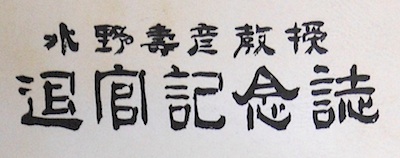 水野壽彦教授
退官記念誌